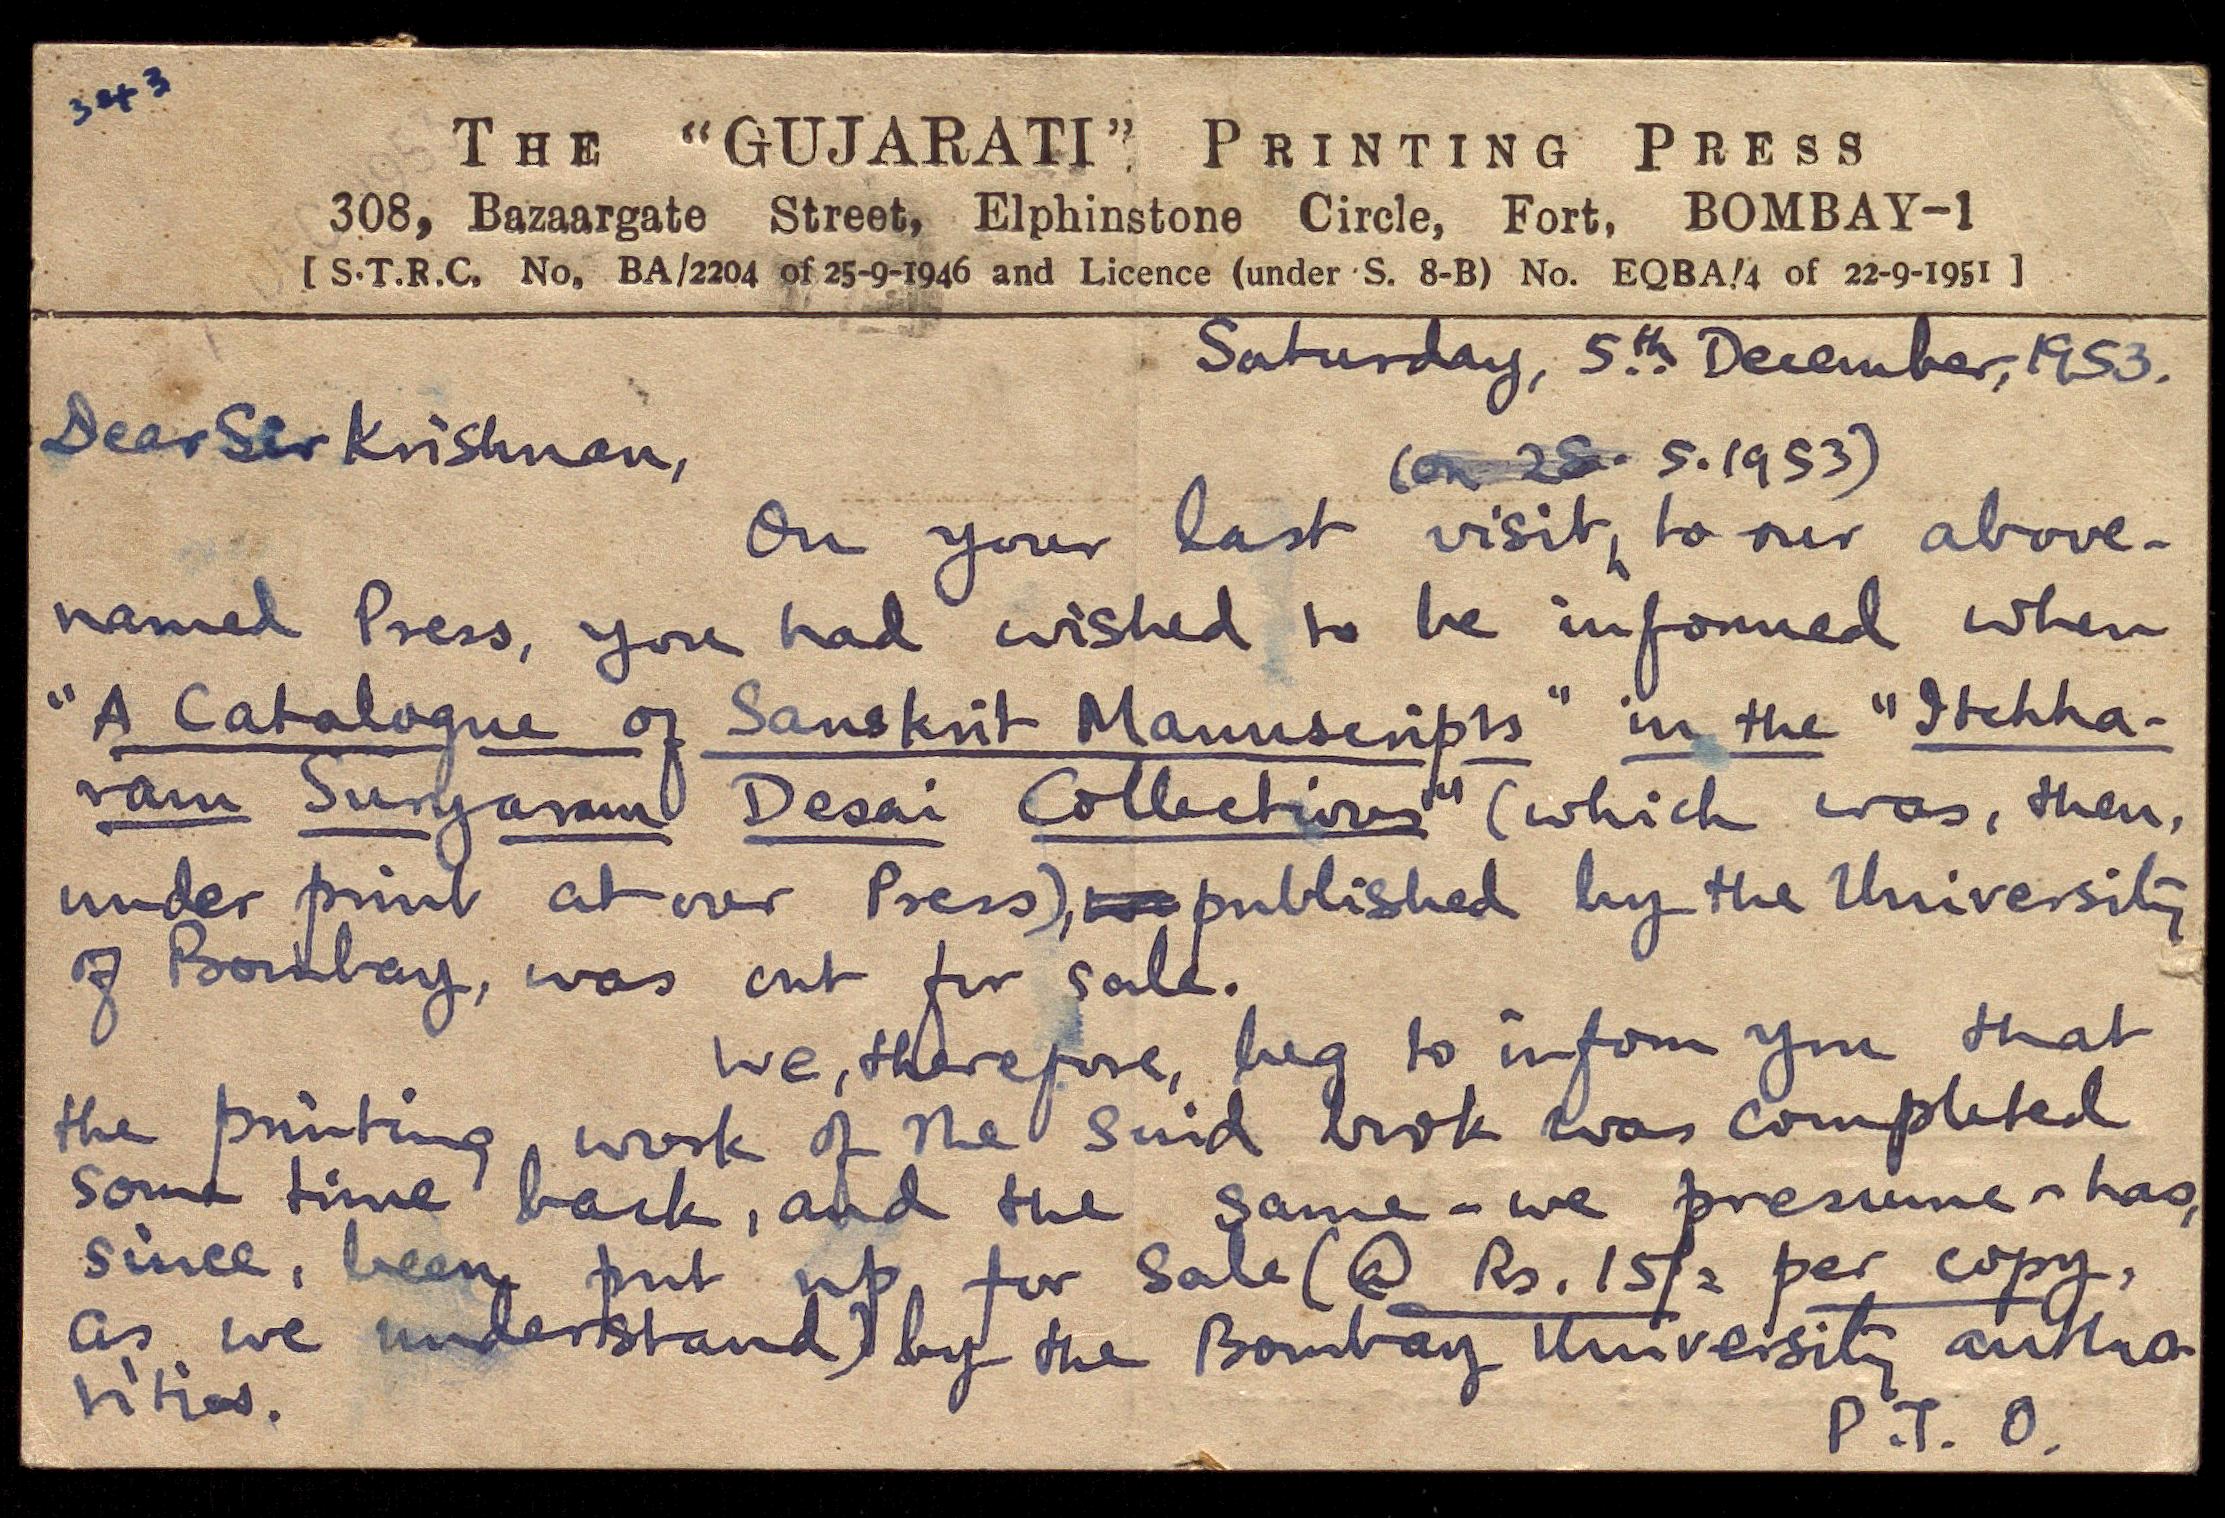 3243
THE "GUJARATI" PRINTING PRESS
308, Bazaargate Street, Elphinstone Circle, Fort, BOMBAY-1
[ S.T.R.C. No. BA/2204 of 25-9-1946 and Licence (under S. 8-B) No. EQBA/4 of 22-9-1951 ]
Saturday, 5th December, 1953.
Dear Sir Krishnan,
(on 28. 5. 1953)
On your last visit, to our above-
named Press, you had wished to be informed when
"A Catalogue of Sanskrit Manuscripts" in the "Itchha-
ram Suryaram Desai Collections" (which was, then,
under print at our Press), published by the University
of Bombay, was out for sale.
We, therefore, beg to inform you that
the printing work of the said book was completed
some time back, and the same - we presume - has,
since, been put up for sale (@ Rs. 15/= per copy,
as we understand) by the Bombay University autho-
rities.
P.T.O.